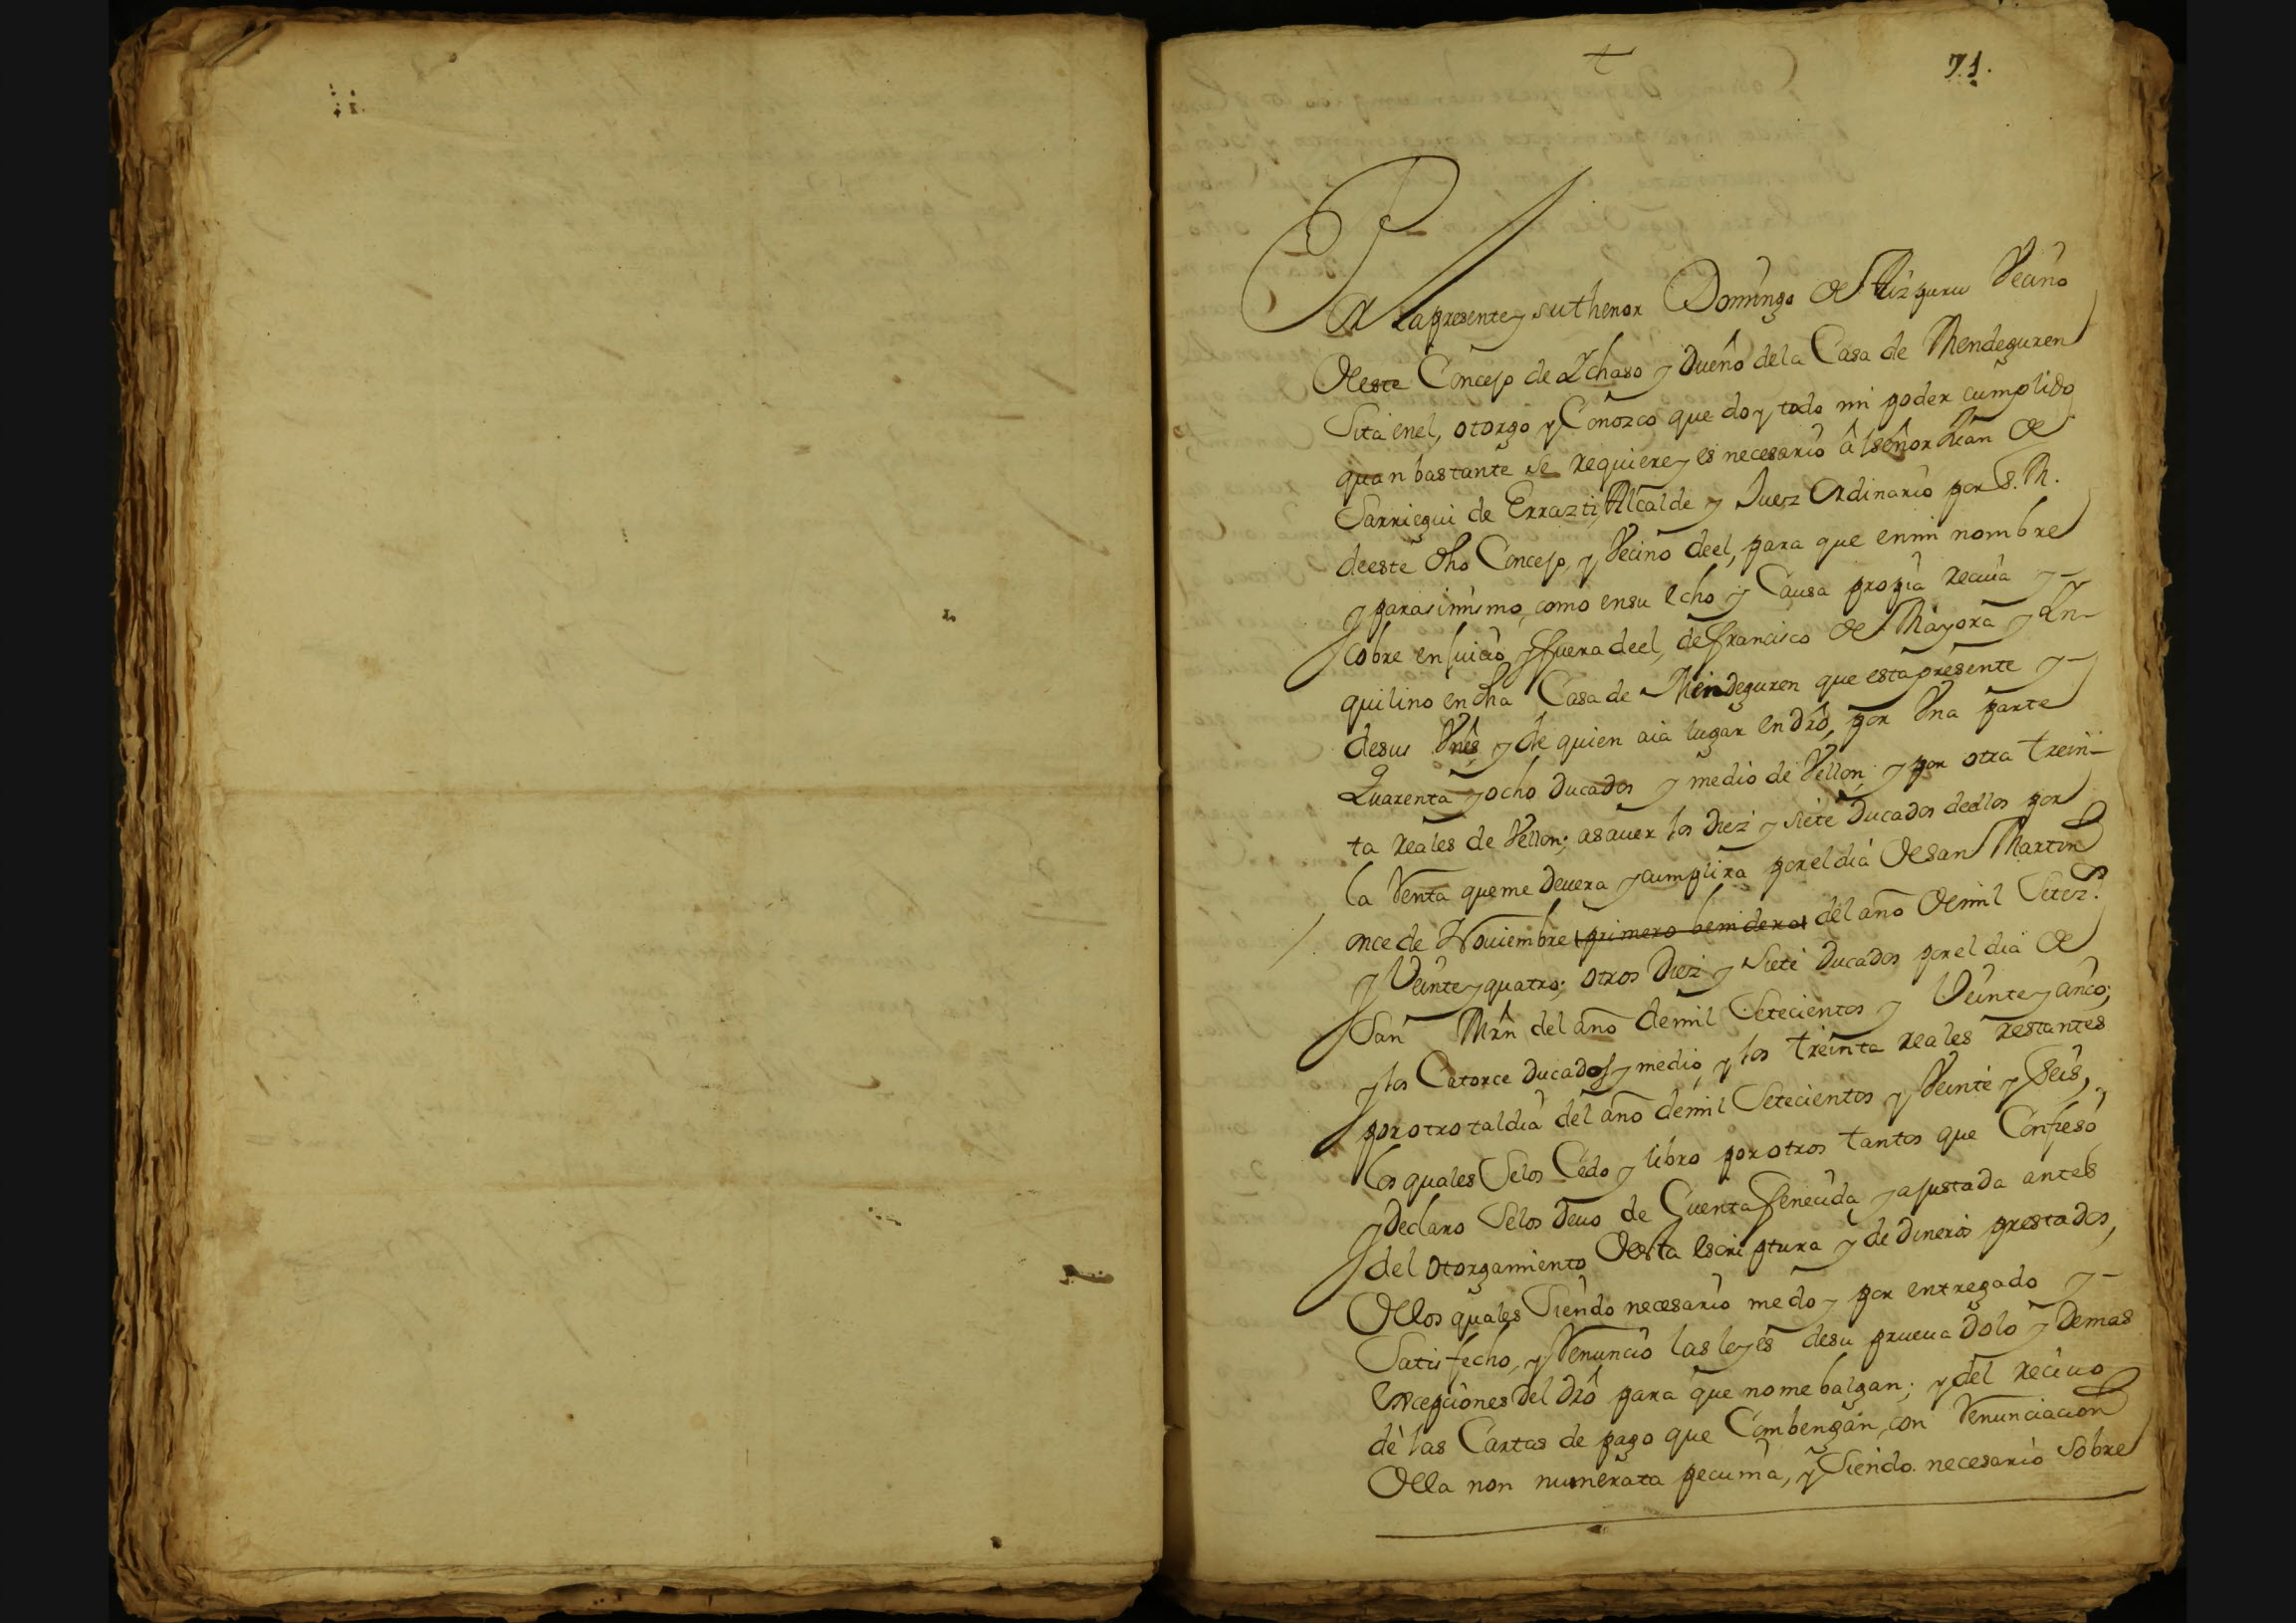 71.
Por la presente y su thenor Domingo de Aizpuru Vecino
deeste Concejo de Ychaso y Dueño dela Casa de Mendeguren
Sita enel, otorgo y Conozco que doy todo mi poder cumplido
quan bastante se requiere y es necesario â lseñor Juan de
Sarriegui de Errazti, Alcalde y Juez Ordinario por S.M.
deeste dho Concejo, y Vecino deel, para que enmi nombre
y parasimismo, como ensu echo y Causa propia reciua y
Cobre enJuicio y fuera deel, de francisco de Mayora Yn-
quilino en dha Casa de Mendeguren que esta presente y
desus Vnês y de quien aia lugar en dró, por Vna parte
Quarenta y ocho Ducados y medio de Vellon, y por otra trein-
ta reales de Vellon; asauer los Diez y siete Ducados deellos por
la Renta queme deuera y cumplira porel dia de san Martin
once de Nouiembre primero benidero del año demil Setez.s
y Veinte y quatro; otros Diez y siete Ducados porel dia de
San Mrñ del año demil Setecientos y Veinte y cinco;
y los Catorce ducados y medio, y los treinta reales restantes
por otro tal dia del año demil Setecientos y Veinte y Seis,
los quales Selos Cedo y libro por otros tantos que Confieso
y Declaro Selos deuo de Cuenta fenecida y ajustada antes
del otorgamiento desta escriptura y de Dineros prestados,
dellos quales Siendo necesario me doy por entregado y
Satisfecho, y Renuncio las leyes desu prueua dolo y Demas
excepciones del dró para que nome balgan; y del reciuo
dè las Cartas de pago que Combengan, con Renunciacion
della non numerata pecunia, y Siendo necesario sobre